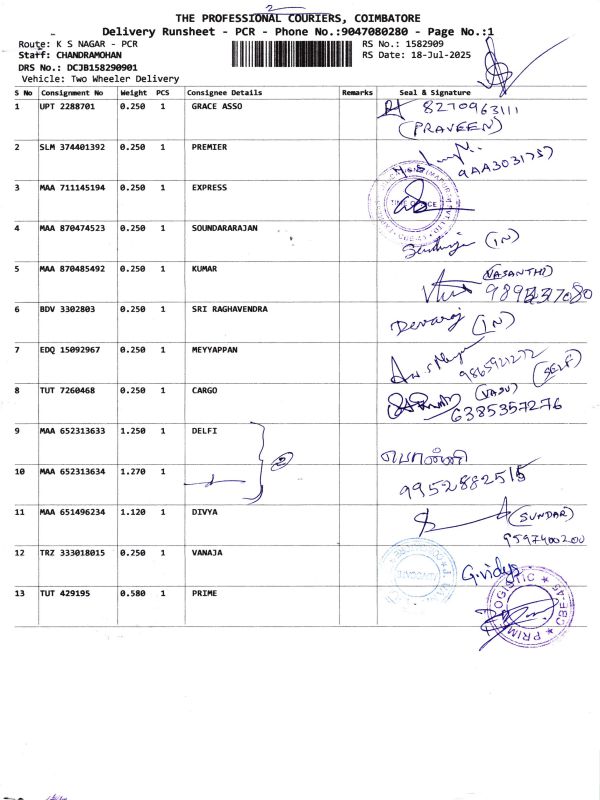 2
THE PROFESSIONAL COURIERS, COIMBATORE
Delivery Runsheet - PCR - Phone No.:9047080280 - Page No.:1
Route: K S NAGAR - PCR RS No.: 1582909
Staff: CHANDRAMOHAN RS Date: 18-Jul-2025
DRS No.: DCJB158290901
Vehicle: Two Wheeler Delivery
S No Consignment No Weight PCS Consignee Details Remarks Seal & Signature
1 UPT 2288701 0.250 1 GRACE ASSO 8270963111
(PRAVEEN)
2 SLM 374401392 0.250 1 PREMIER
3 MAA 711145194 0.250 1 EXPRESS
TIME OFFICE
4 MAA 870474523 0.250 1 SOUNDARARAJAN (IN)
5 MAA 870485492 0.250 1 KUMAR (VASANTHI)
6 BDV 3302803 0.250 1 SRI RAGHAVENDRA Devaraj (IN)
7 EDQ 15092967 0.250 1 MEYYAPPAN (SELF)
8 TUT 7260468 0.250 1 CARGO (VASU)
6385357276
9 MAA 652313633 1.250 1 DELFI பொன்னி
10 MAA 652313634 1.270 1 9952882515
11 MAA 651496234 1.120 1 DIVYA (SUNDAR)
9597400200
12 TRZ 333018015 0.250 1 VANAJA G.vidya
13 TUT 429195 0.580 1 PRIME
PRIME LOGISTIC CBE-45